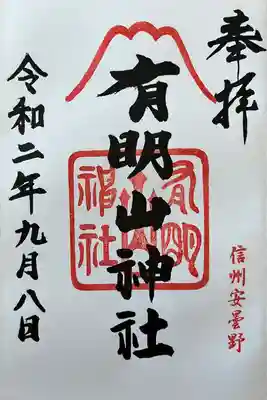 奉拝
有明山神社
有明山神社
信州安曇野
令和二年九月八日